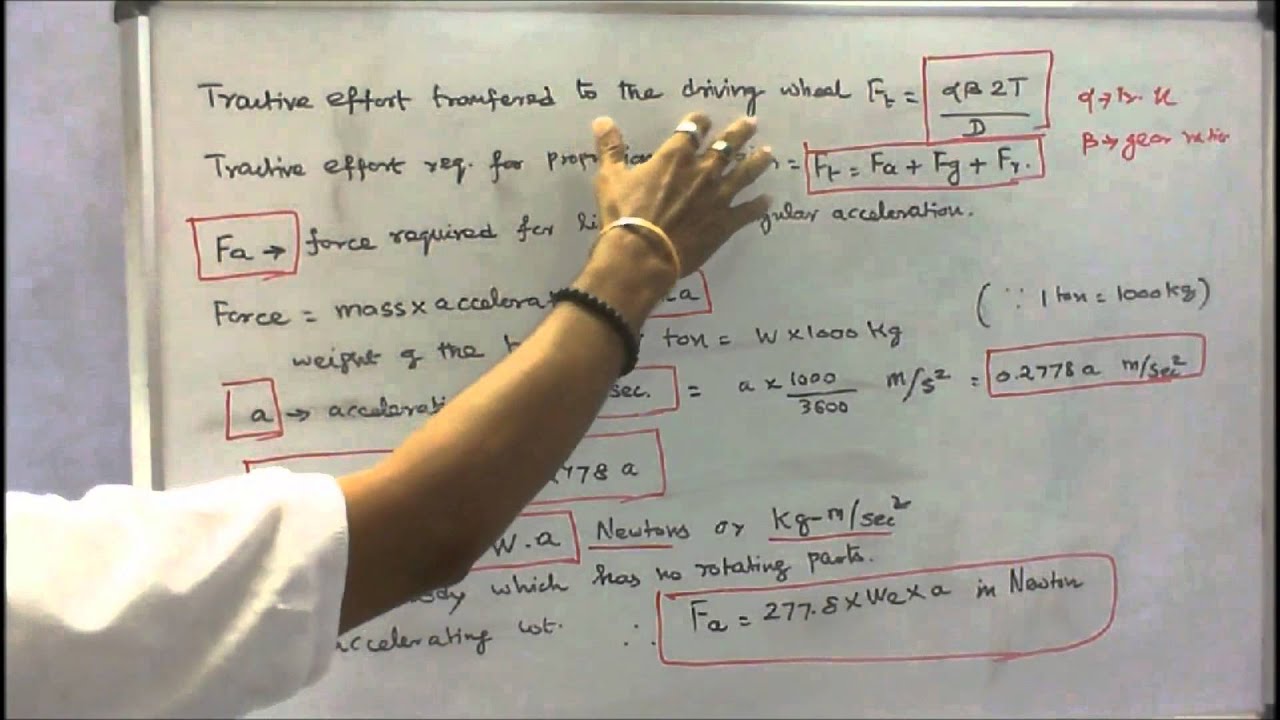 Tractive effort tranfered to the driving wheel Ft = αβ 2T / D
β → gear ratio
Tractive effort req. for = Ft = Fa + Fg + Fr.
Fa → force required for acceleration.
Force = mass x a (∵ 1 ton = 1000 kg)
weight of the ton = W x 1000 kg
a → sec. = a x 1000/3600 m/s² = 0.2778 a m/sec²
778 a
W.a Newtons or Kg-m/sec²
which has no rotating parts.
accelerating wt. ∴ Fa = 277.8 x We x a in Newton